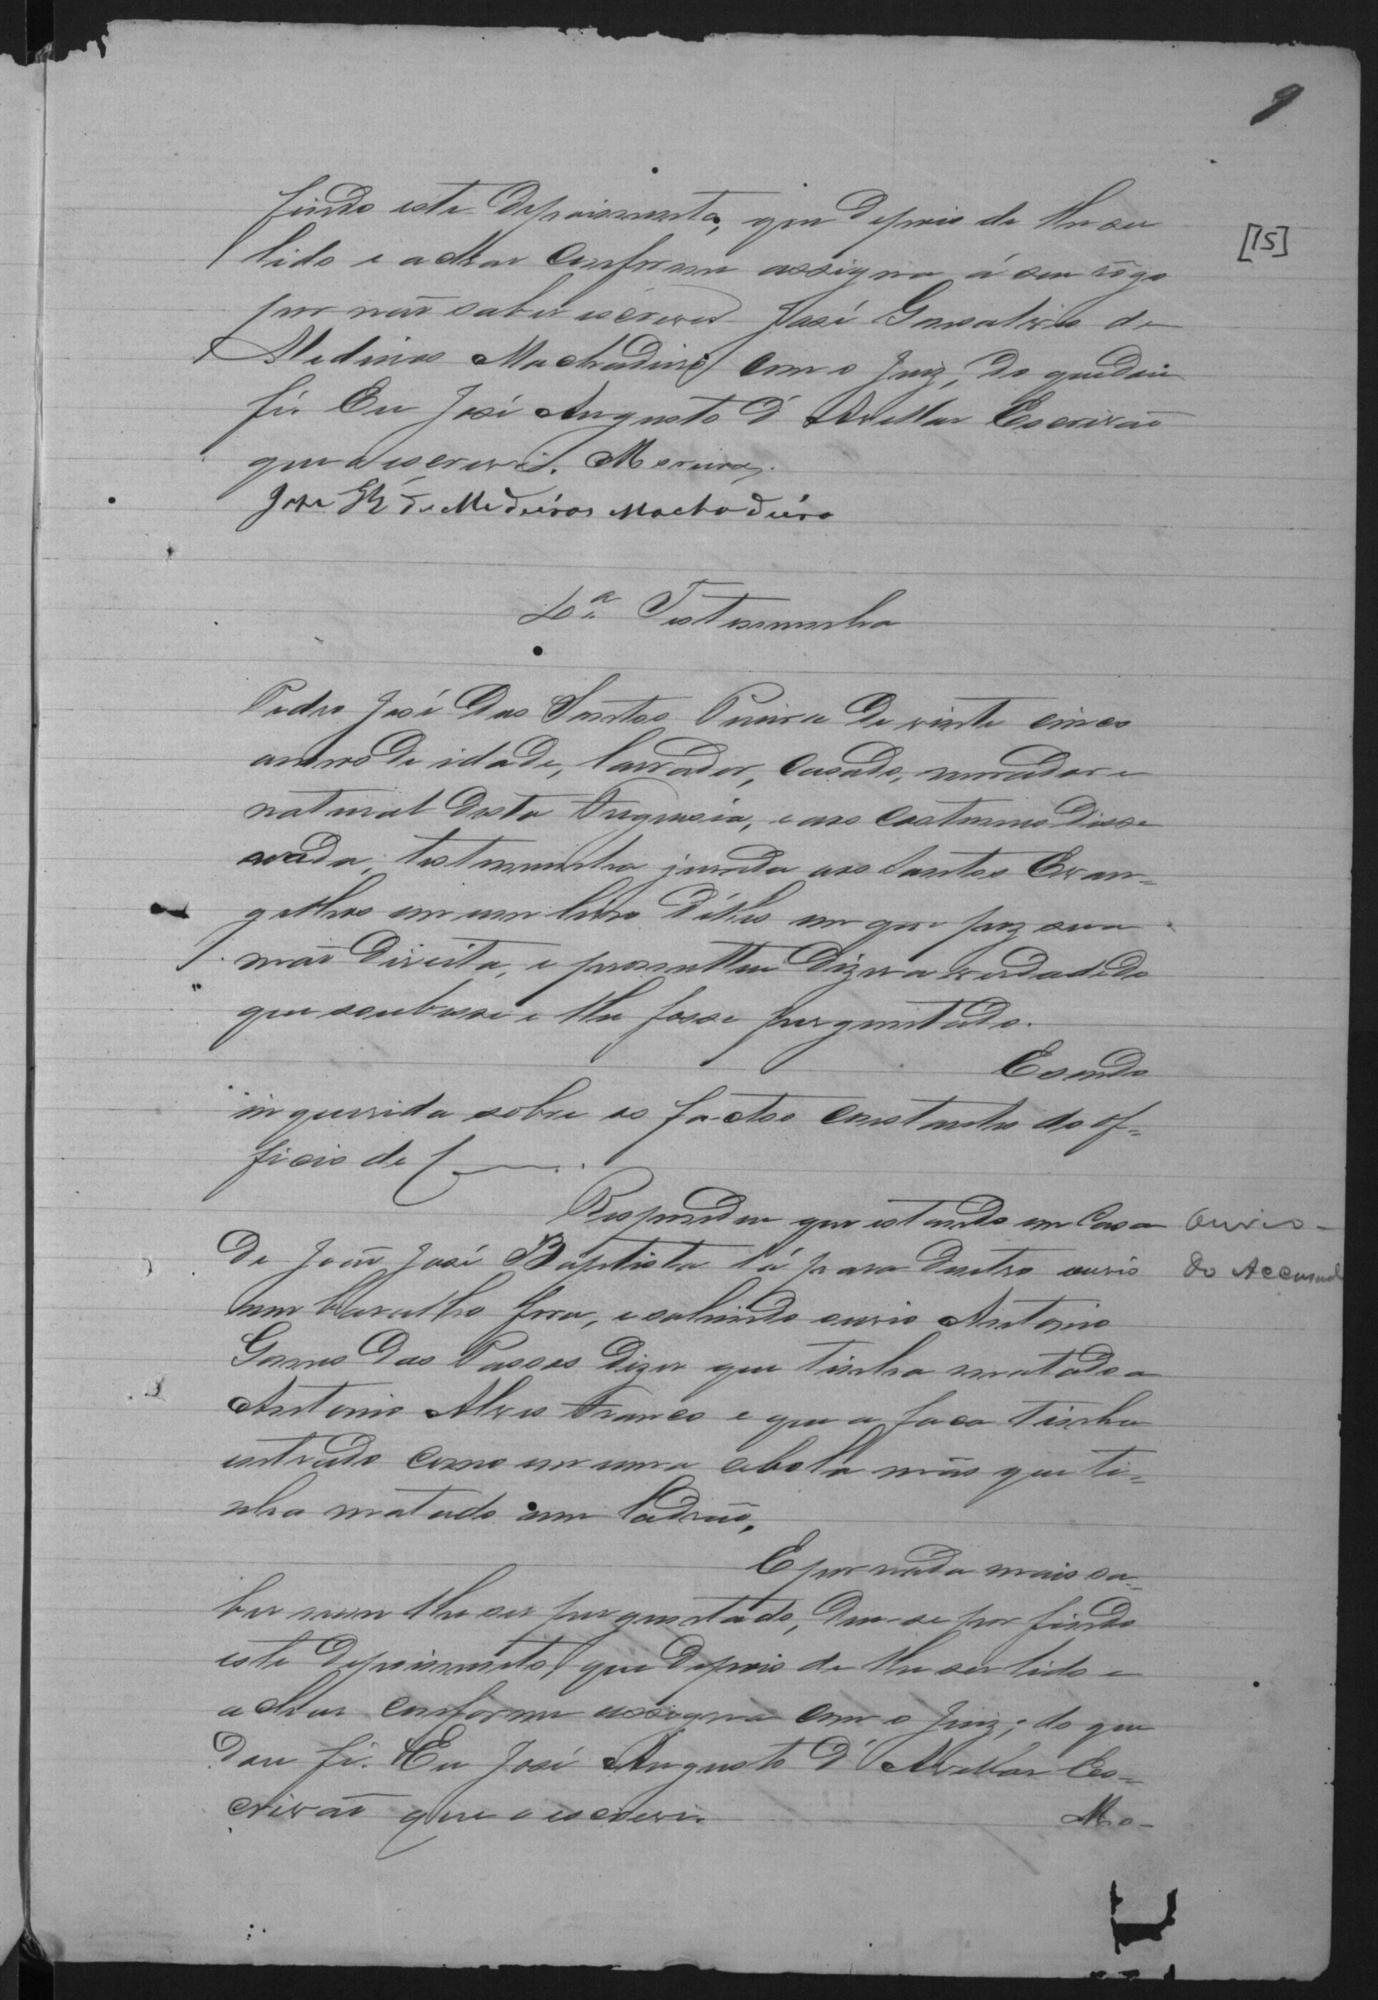 9
[15]
findo este depoimento, que depois de lhe ser
lido e achar conforme assigna á seu rôgo
por não saber escrever José Gonsalves de
Medeiros Machadinho com o Juiz, do que dou
fé. Eu José Augusto d'Avellar Escrivão
que o escrevi. Moreira.
José Glz de Medeiros Machadinho
4.ª Testemunha
Pedro José dos Santos Pereira de vinte cinco
annos de idade, lavrador, casado, morador e
natural desta Freguesia, e aos costumes disse
nada, testemunha jurada aos Santos Evan=
gelhos em um livro d'elles em que poz sua
mão direita, e prometteu dizer a verdade do
que soubesse e lhe fosse perguntado.
E sendo
inquerida sobre os factos constantes do of=
ficio de f
Respondeu que estando em casa
de João José Baptista lá para dentro ouvio
um barulho fora, e sahindo ouvio Antonio
Gomes dos Passos dizer que tinha matado a
Antonio Alves Franco e que a faca tinha
entrado como em uma cebola mas que ti=
nha matado um ladrão.
Ouvio-
do Accusado
E por nada mais sa-
ber nem lhe ser perguntado, deu-se por findo
este depoimento, que depois de lhe ser lido e
achar conforme assigna com o Juiz; do que
dou fé. Eu José Augusto d'Avellar Es=
crivão que o escrevi.
Mo-